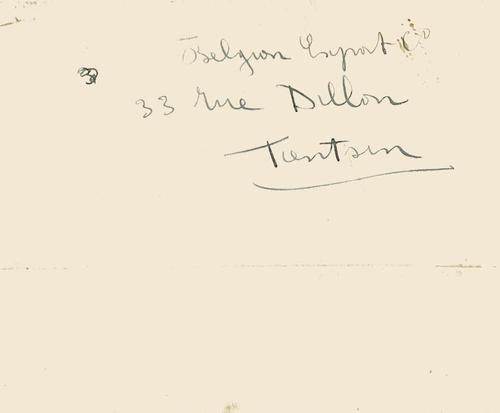 Belgian Export Co
3
33 rue Dillon
Tientsin